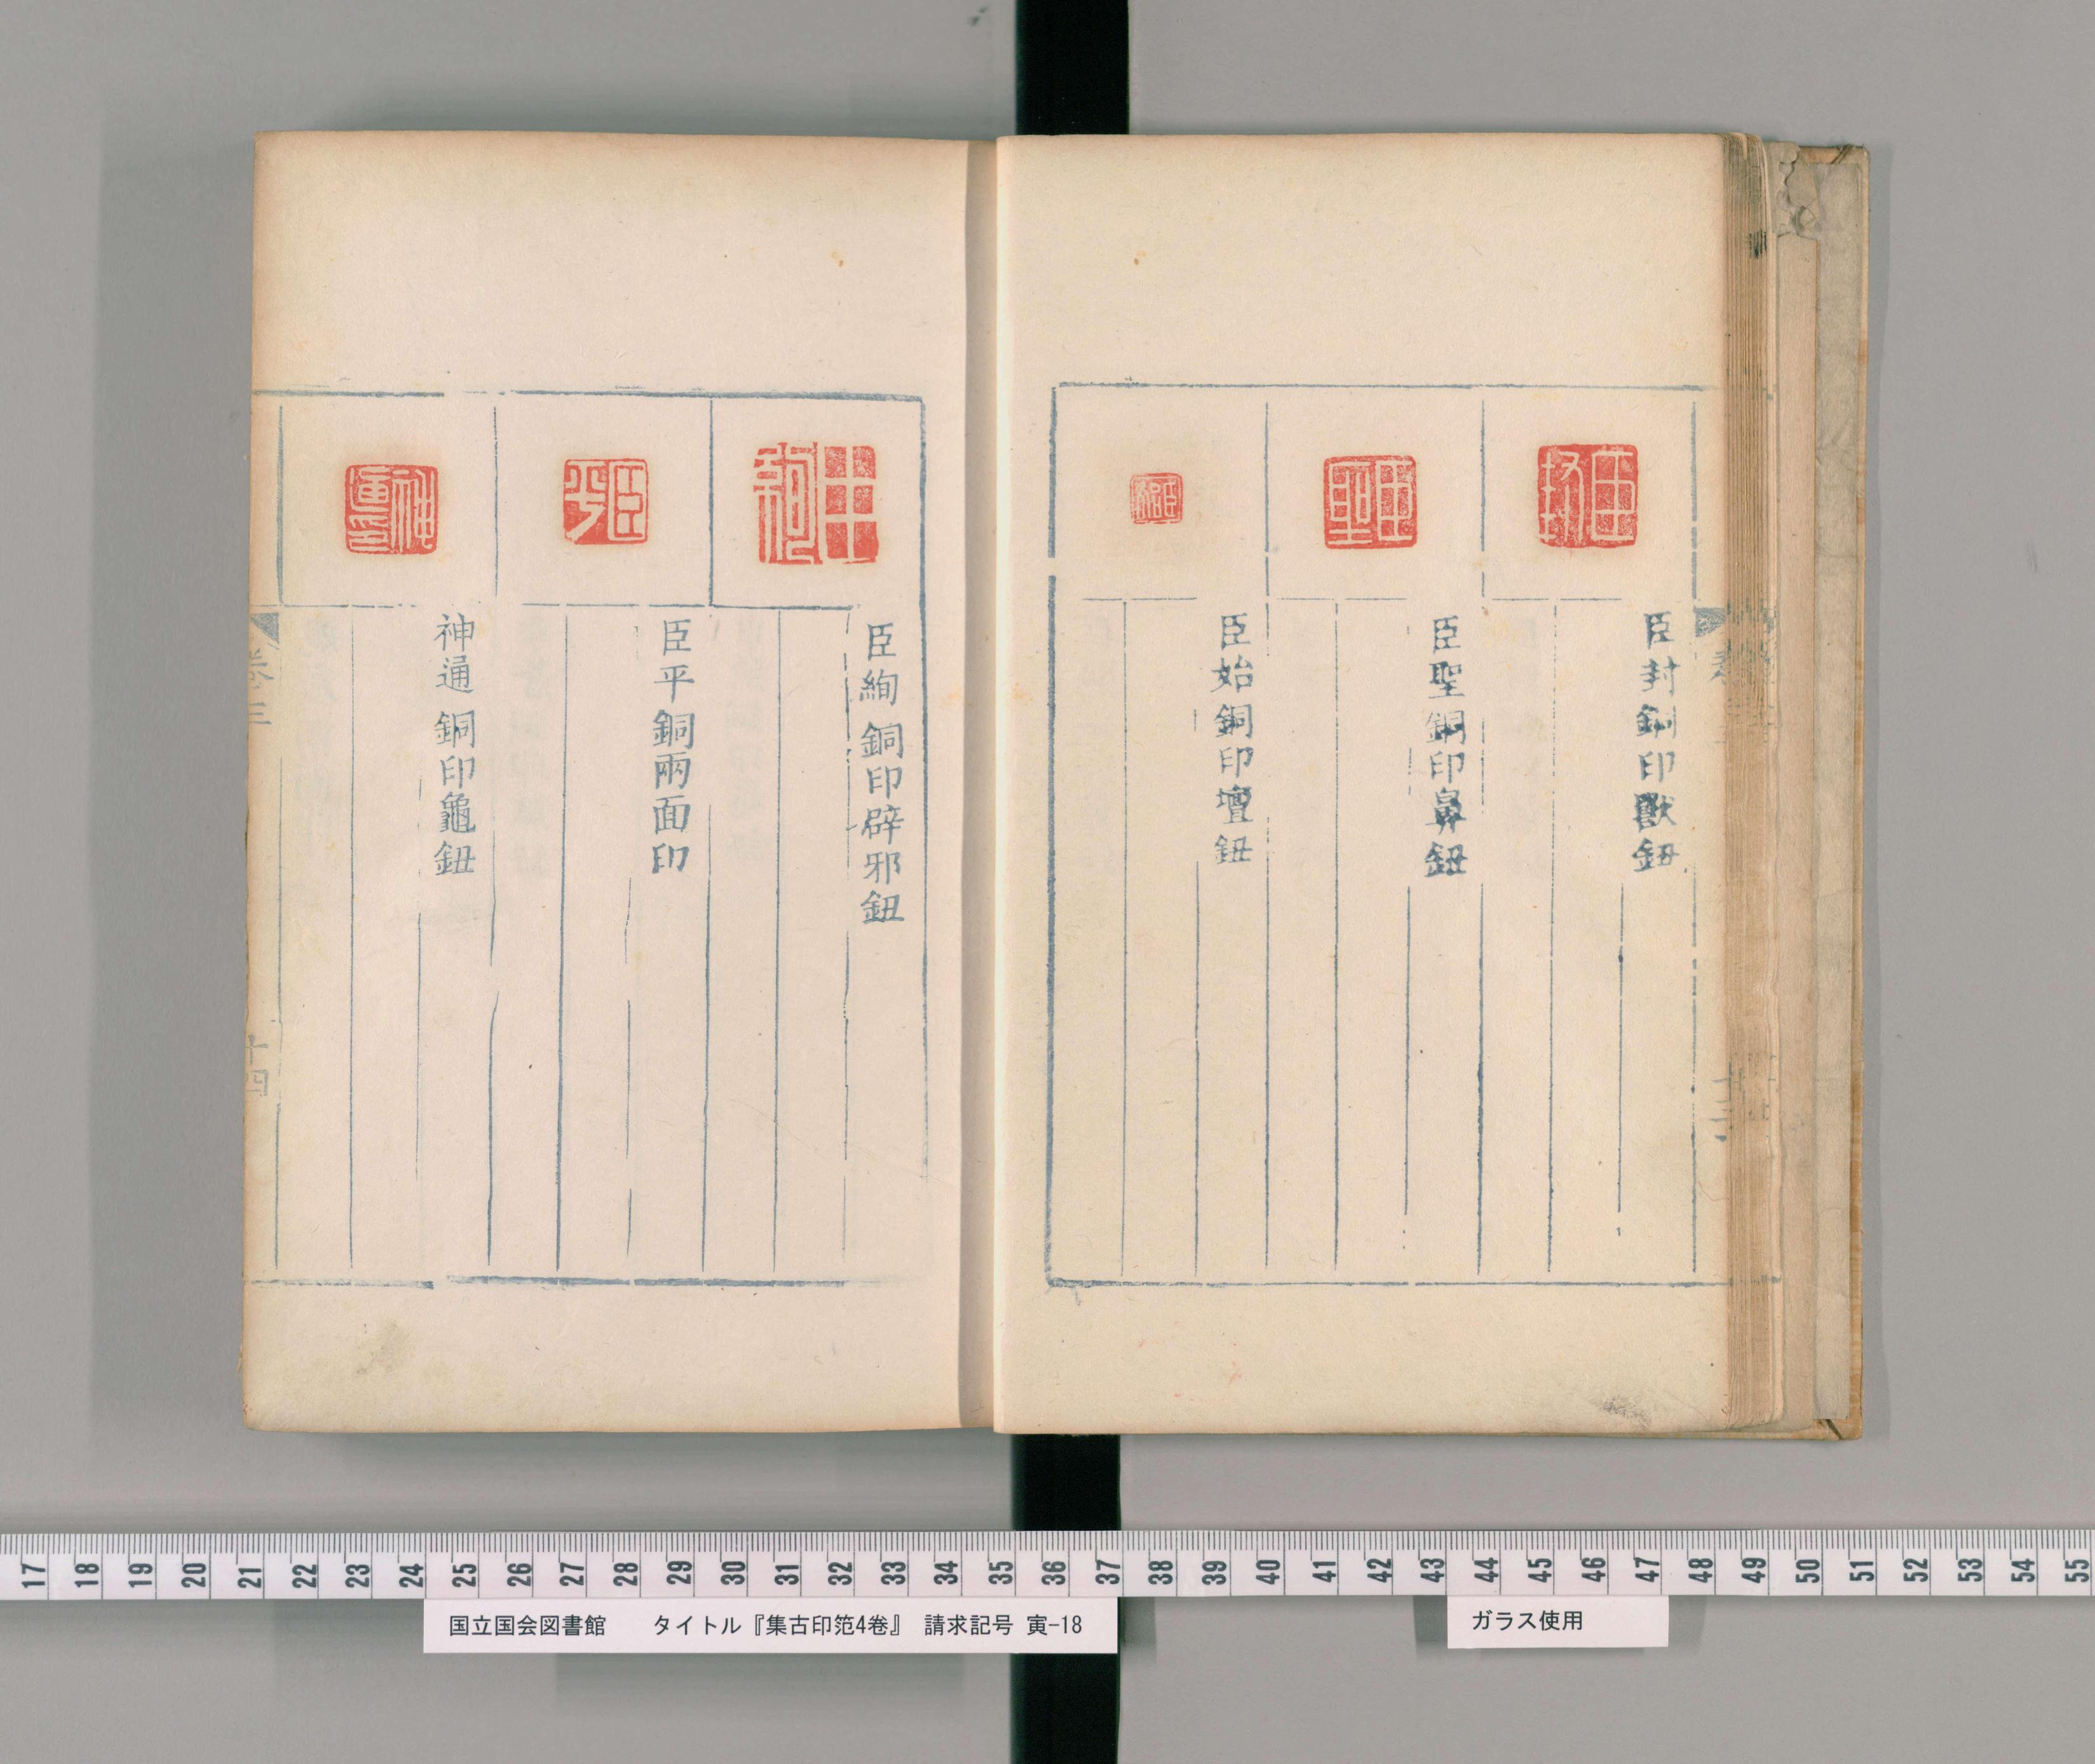 臣封銅印獸鈕
臣聖銅印鼻鈕
臣始銅印壇鈕
臣絢銅印辟邪鈕
臣平銅兩面印
神通銅印龜鈕
卷三
十四
臣封
臣聖
臣始
臣絢
臣平
神通印
17 18 19 20 21 22 23 24 25 26 27 28 29 30 31 32 33 34 35 36 37 38 39 40 41 42 43 44 45 46 47 48 49 50 51 52 53 54 55
国立国会図書館 タイトル『集古印笵4巻』 請求記号 寅-18
ガラス使用